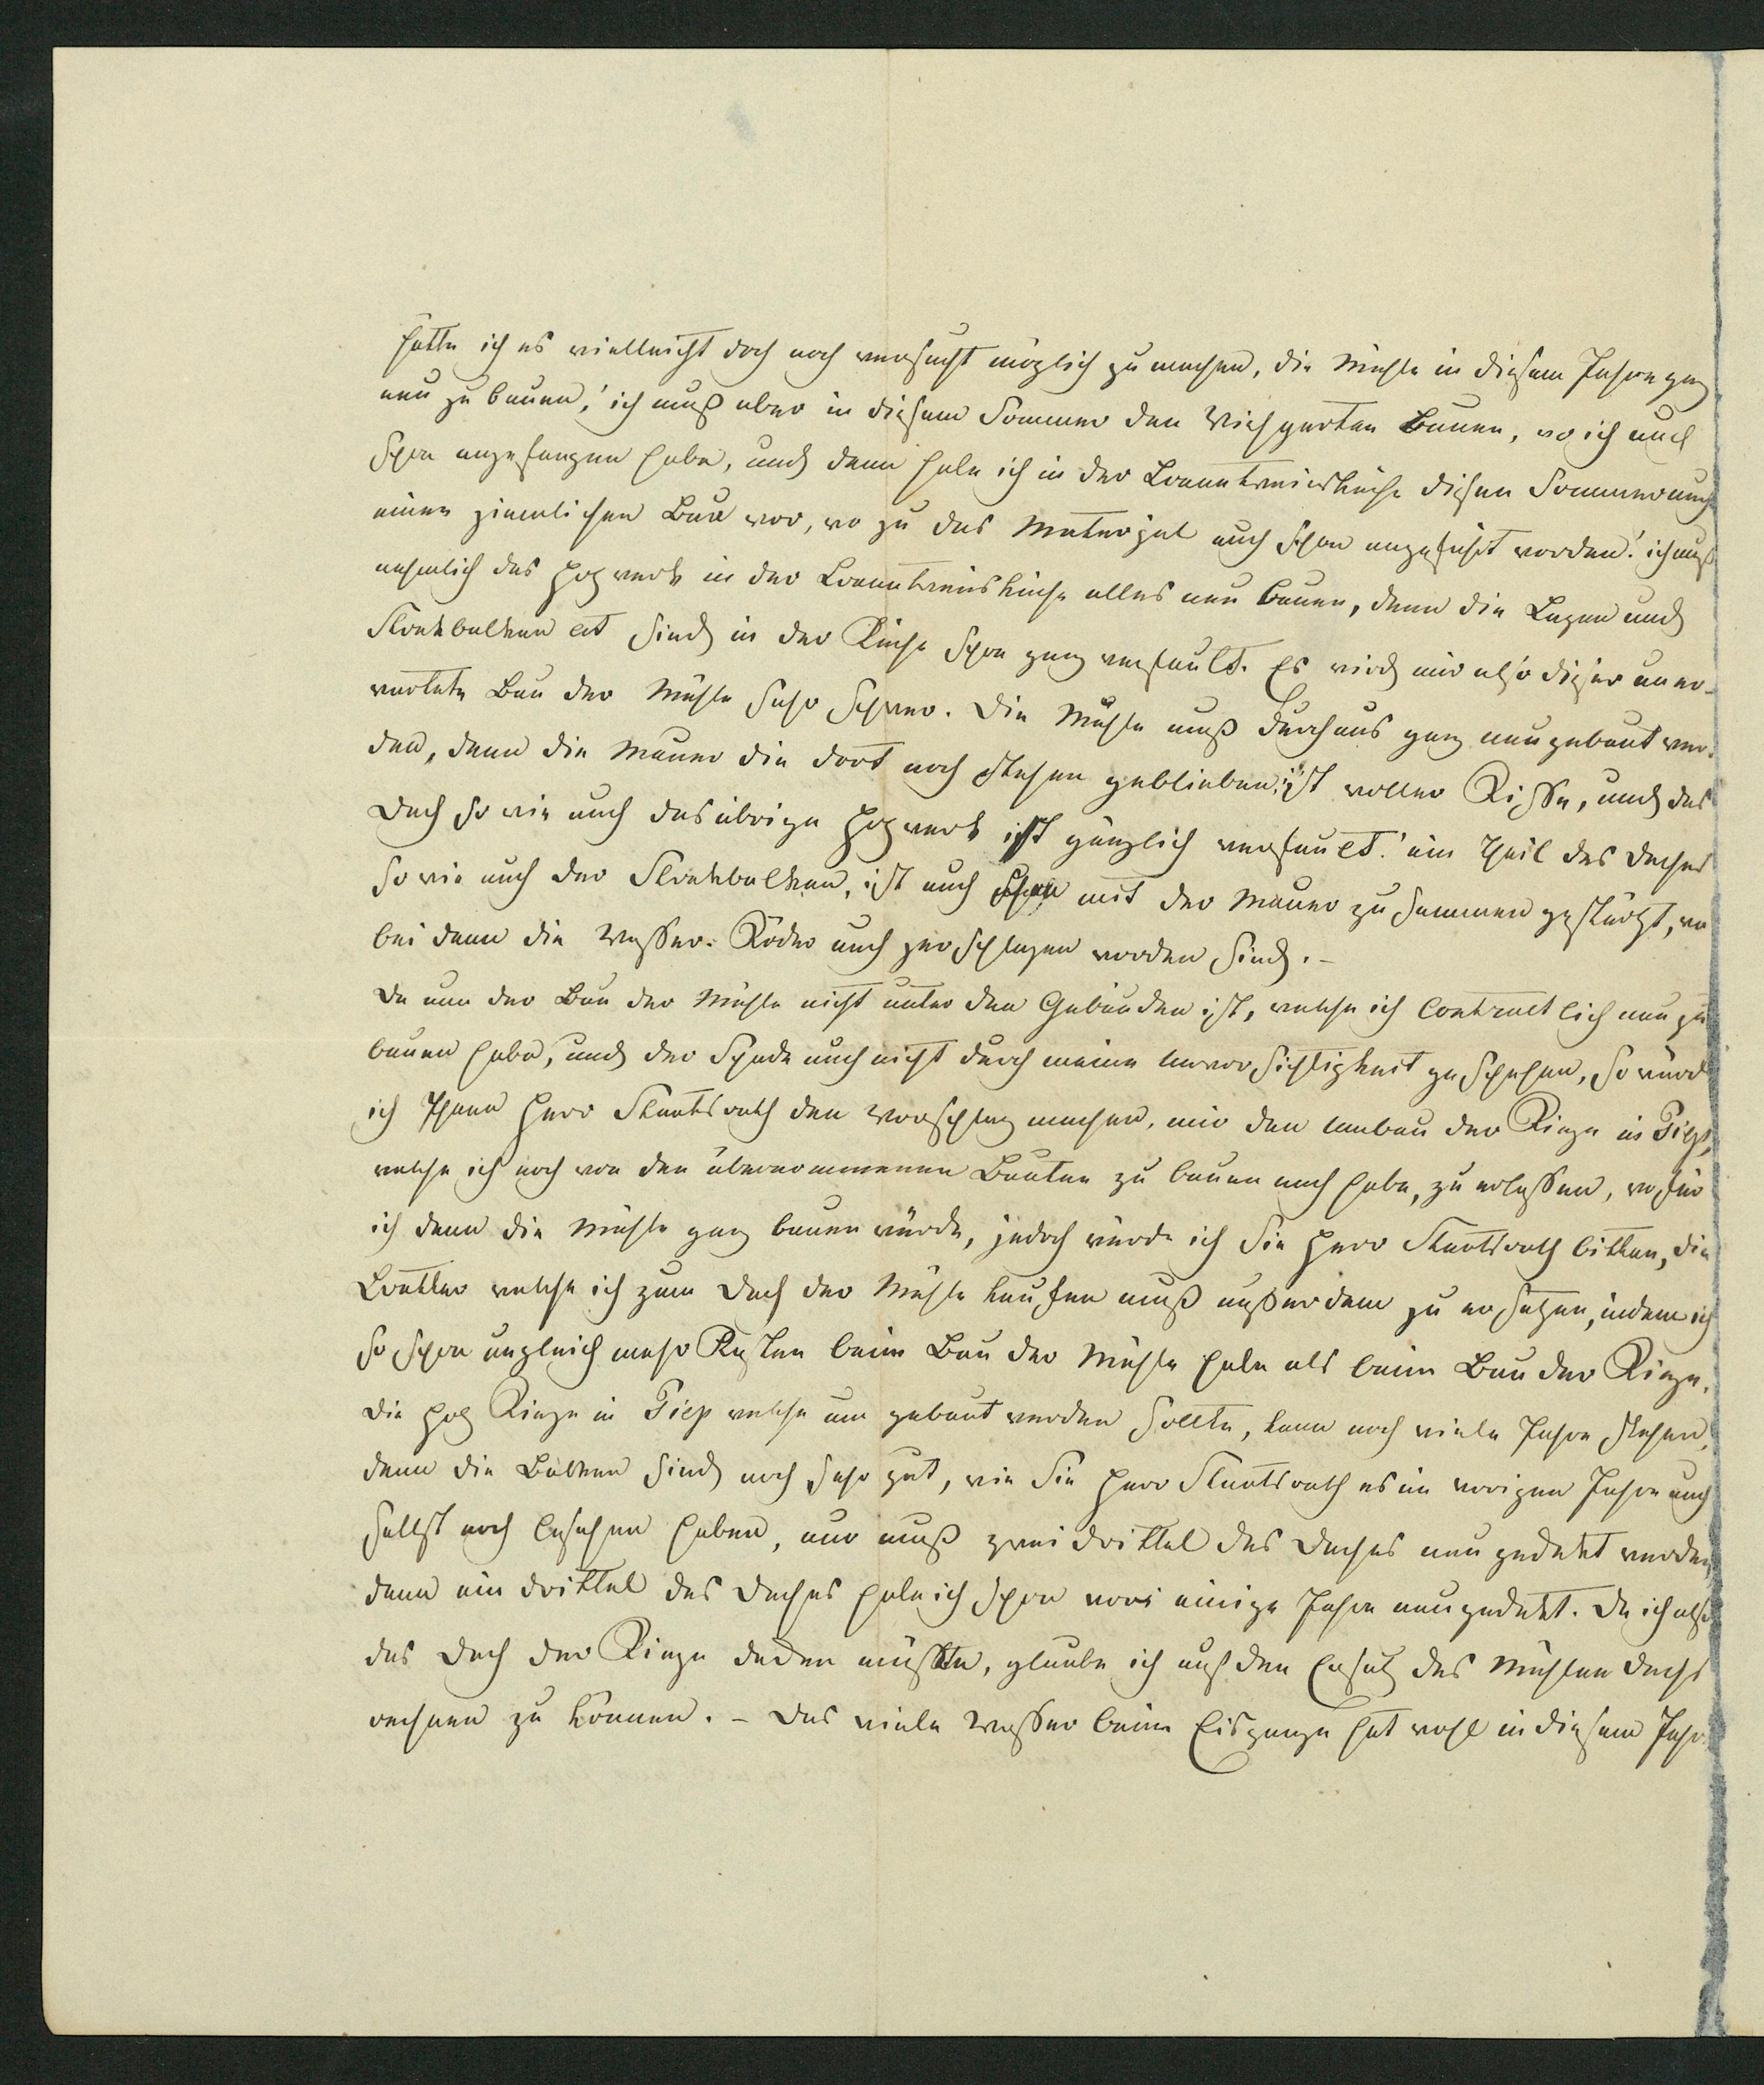 hätte ich es vielleicht doch noch versucht möglich zu machen, die Mühle in diesem Jahre ganz
neu zu bauen, ich muß aber in diesem Sommer den Viehgarten bauen, wo ich auch
schon angefangen habe, und dann habe ich in der Branntweinsküche diesen Sommer auch
einen ziemlichen Bau vor, wo zu das Material auch schon angeführt worden! ich muß
nehmlich das Holzwerk in der Branntweinsküche alles neu bauen, denn die Lagen und
Streckbalken ect sind in der Küche schon ganz verfault. Es wird mir also dieser uner-
wartete Bau der Mühle sehr schwer. Die Mühle muß durchaus ganz neu gebaut wer-
den, denn die Mauer die dort noch stehen geblieben, ist voller Risse, und das
Dach so wie auch das übrige Holzwerk ist gänzlich verfault! ein Theil des Daches
so wie auch der Streckbalken, ist auch schon mit der Mauer zusammen gestürtzt, wo
bei denn die Wasser-Räder auch zerschlagen worden sind. –
Da nun der Bau der Mühle nicht unter den Gebäuden ist, welche ich Contractlich neu zu
bauen habe, und der Schade auch nicht durch meine Unvorsichtigkeit geschehen, so würde
ich Ihnen Herr Staatsrath den Vorschlag machen, mir den Umbau der Riege in Piep,
welche ich noch von den übernommenen Bauten zu bauen nach habe, zu erlassen, wofür
ich denn die Mühle ganz bauen würde, jedoch würde ich Sie Herr Staatsrath bitten, die
Bretter welche ich zum Dach der Mühle kaufen muß außerdem zu ersetzen, indem ich
so schon ungleich mehr Kosten beim Bau der Mühle habe als beim Bau der Riege.
Die Holz Riege in Piep welche um gebaut werden sollte, kann noch viele Jahre stehen,
denn die Balken sind noch sehr gut, wie Sie Herr Staatsrath es im vorigen Jahre auch
selbst noch besehen haben, nur muß zwei drittel des Daches neu gedekt werden,
denn ein drittel des Daches habe ich schon vor einige Jahre neu gedekt. Da ich also
das Dach der Riege decken müßte, glaube ich auf den Ersatz des Mühlen Dachs
rechnen zu können. – Das viele Wasser beim Eisgange hat wohl in diesem Jahr